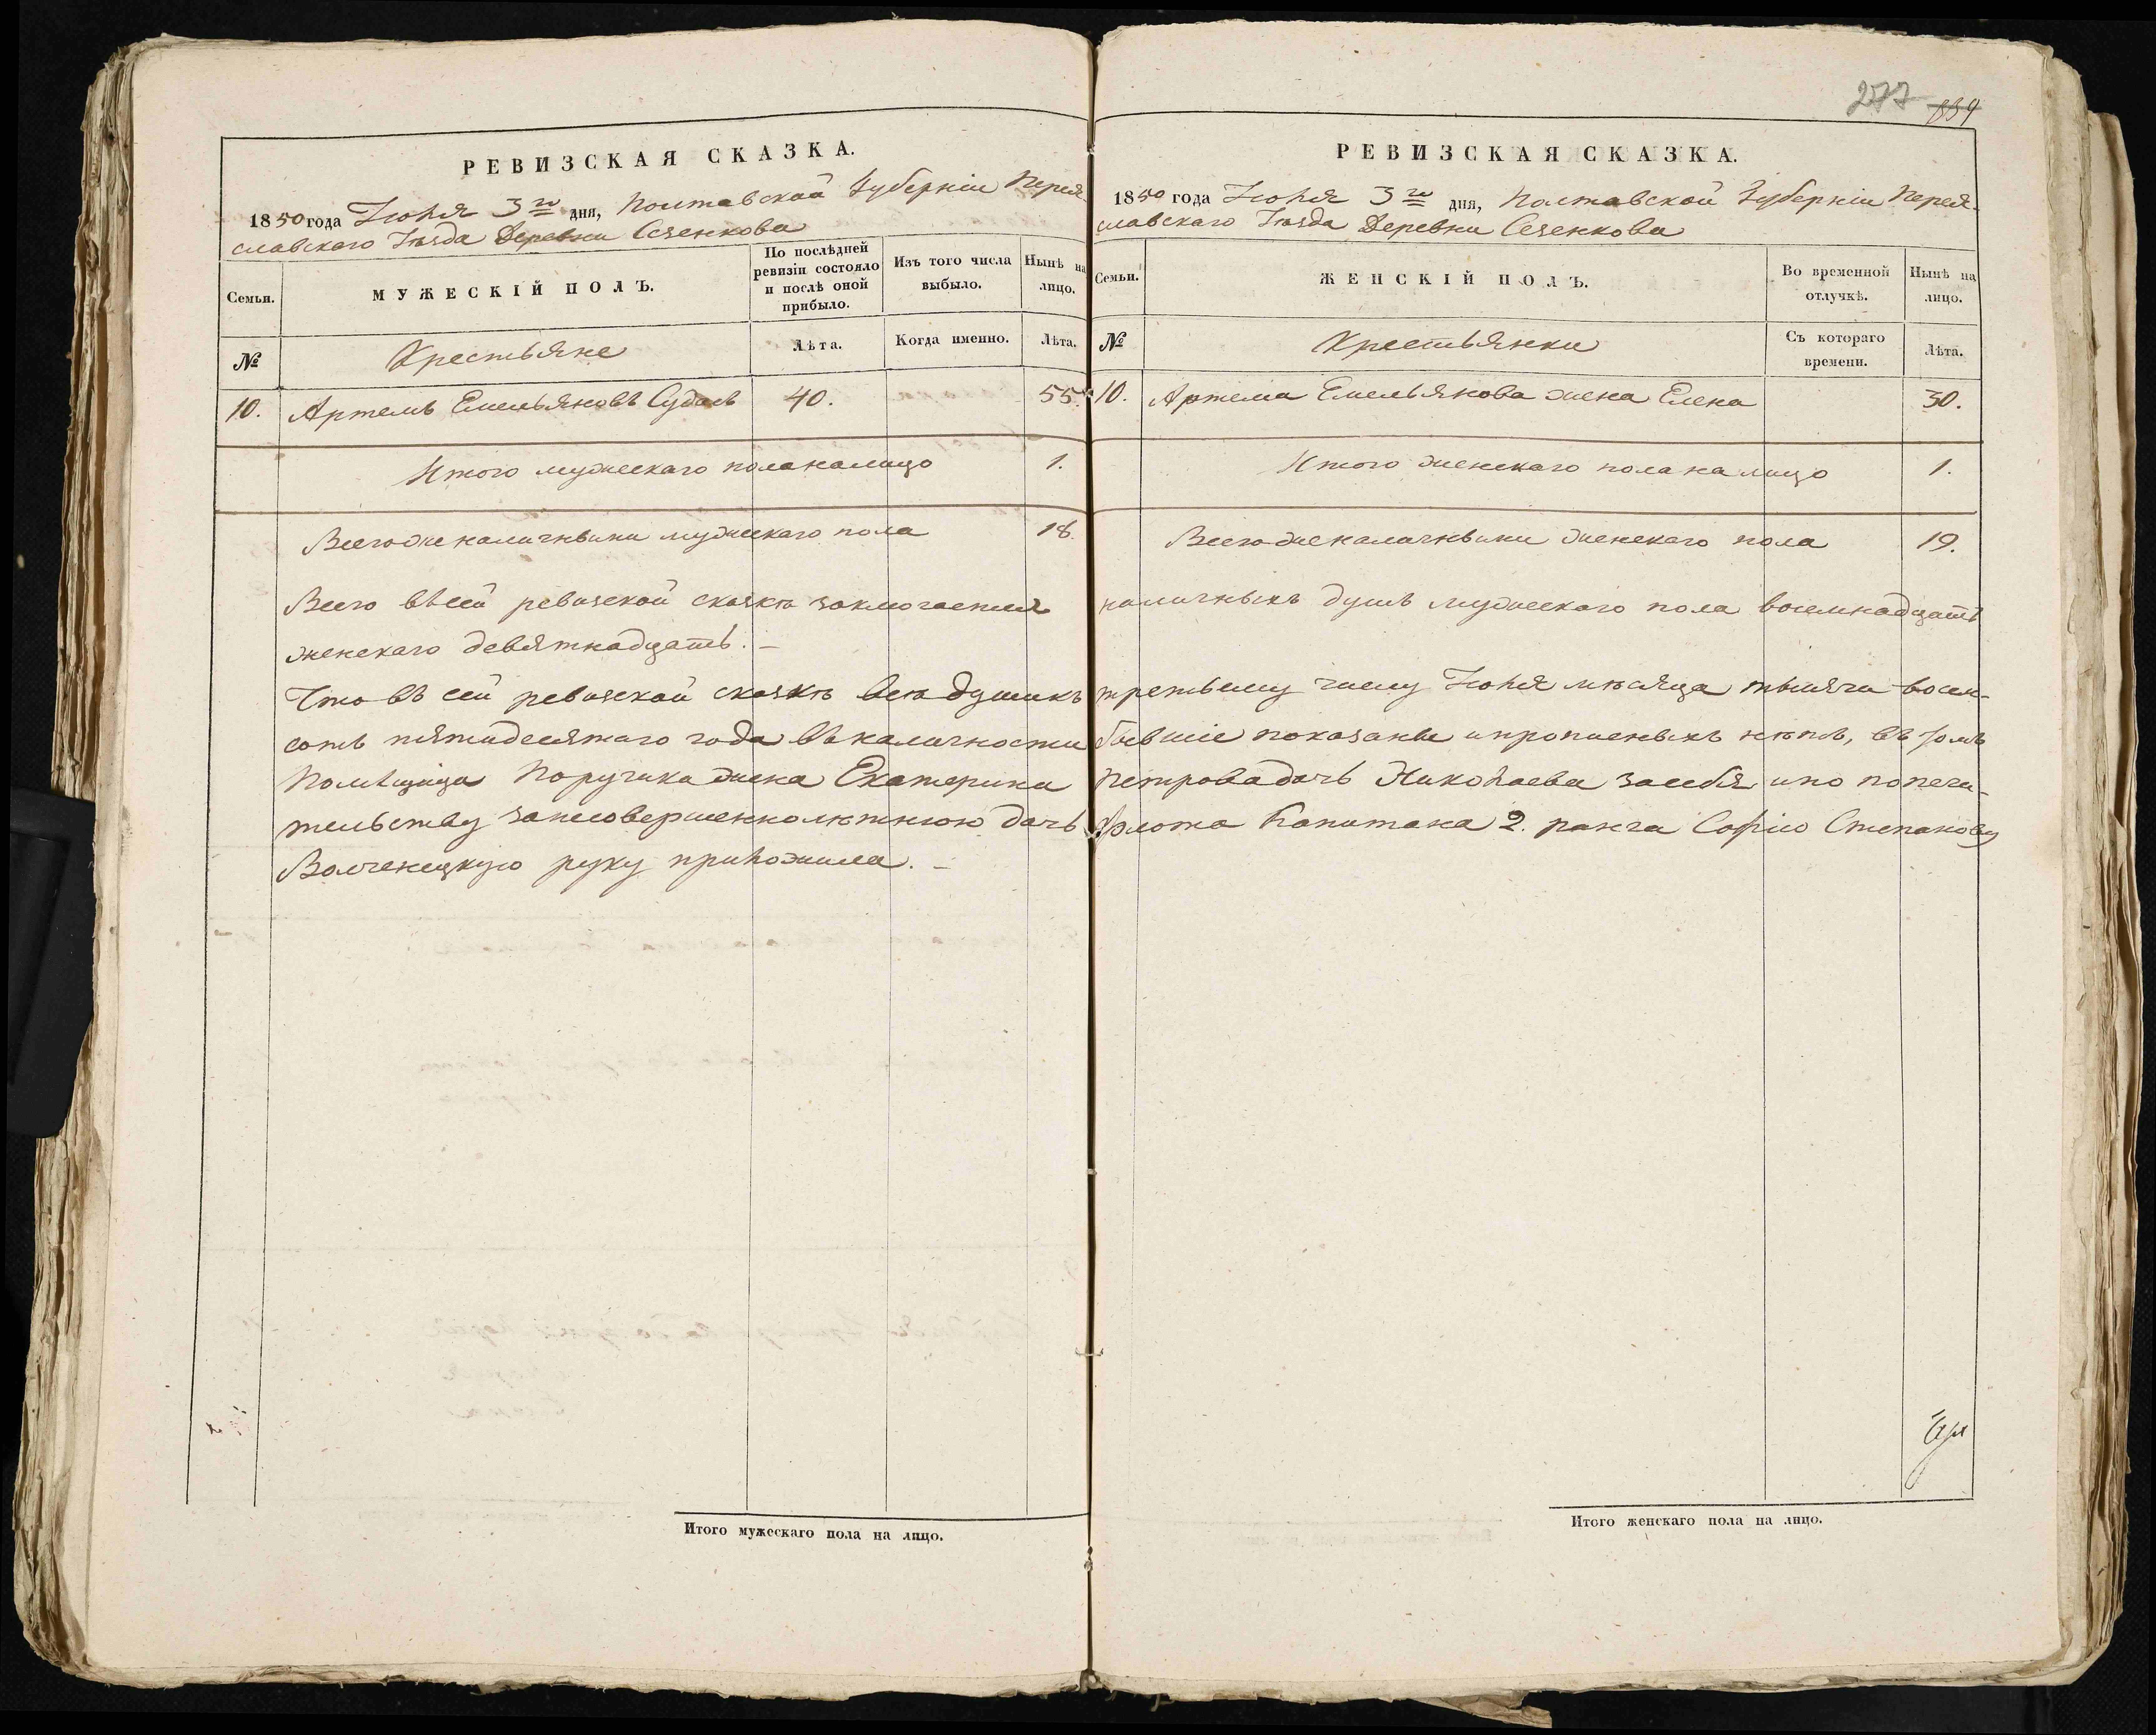 277 339
РЕВИЗСКАЯ СКАЗКА.
1850 года Іюля 3го дня, Полтавской Губерніи Перея-
славскаго Уѣзда Деревни Сезенкова
Семьи.
МУЖЕСКІЙ ПОЛЪ.
По послѣдней ревизіи состояло и послѣ оной прибыло.
Изъ того числа выбыло.
Нынѣ на лицо.
№
Крестьяне
Лѣта.
Когда именно.
Лѣта.
10. Артемъ Емельяновъ 40. 55.
Итого мужескаго пола на лицо 1.
Всего же наличными мужескаго пола 18.
РЕВИЗСКАЯ СКАЗКА.
1850 года Іюля 3го дня, Полтавской Губерніи Перея-
славскаго Уѣзда Деревни Сезенкова
Семьи.
ЖЕНСКІЙ ПОЛЪ.
Во временной отлучкѣ.
Нынѣ на лицо.
№
Крестьянки
Съ котораго времени.
Лѣта.
10. Артема Емельянова жена Елена 30.
Итого женскаго пола на лицо 1.
Всего же наличными женскаго пола 19.
Всего въ сей ревизской сказкѣ заключается наличныхъ душъ мужескаго пола восемнадцать
женскаго девятнадцать. —
Что въ сей ревизской сказкѣ всѣ души къ третьему числу Іюля мѣсяца тысяча восем-
сотъ пятидесятаго года въ наличности бывшіе показаны и прописныхъ нѣтъ, въ томъ
Помѣщица Поручика жена Екатерина Петрова дочь Николаева за себя и по попечи-
тельству за несовершеннолѣтнюю дочь флота Капитана 2. ранга Софію Степанову
руку приложила. —
Итого мужескаго пола на лицо.
Итого женскаго пола на лицо.